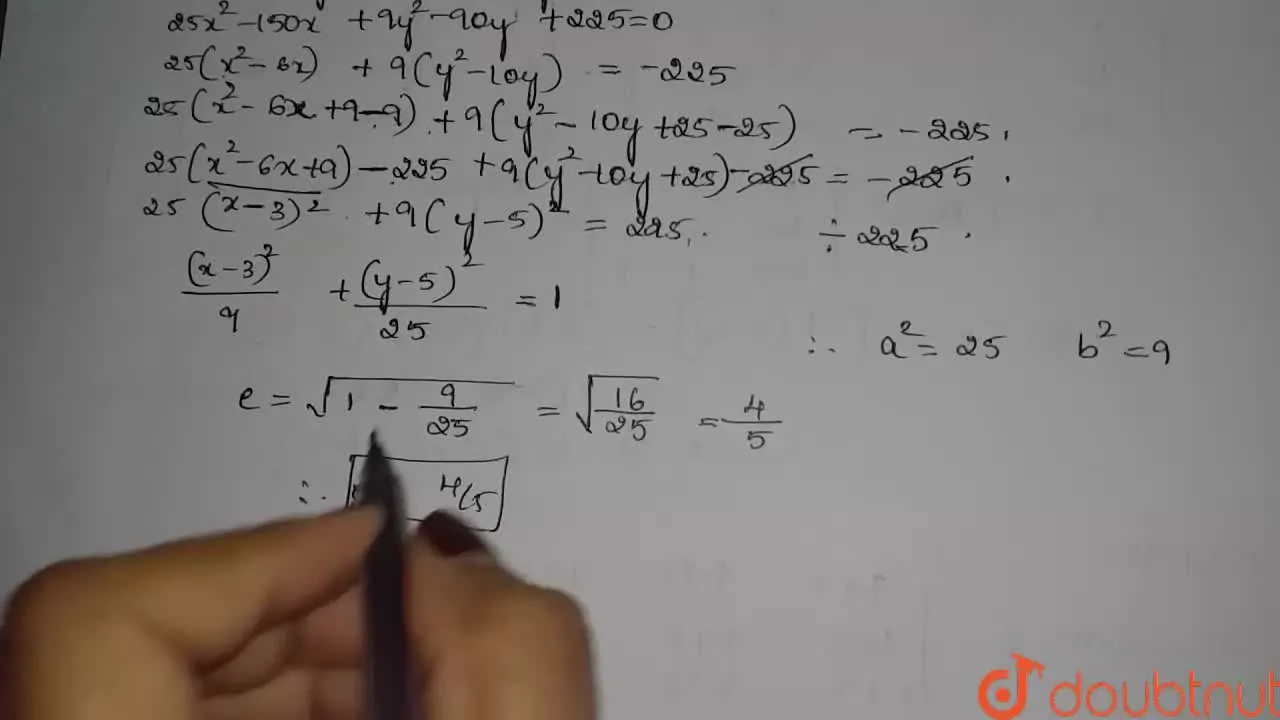 25x² - 150x + 9y² - 90y + 225 = 0
25(x² - 6x) + 9(y² - 10y) = -225
25(x² - 6x + 9 - 9) + 9(y² - 10y + 25 - 25) = -225.
25(x² - 6x + 9) - 225 + 9(y² - 10y + 25) - 225 = -225.
25(x - 3)² + 9(y - 5)² = 225. ÷ 225.
(x - 3)²/9 + (y - 5)²/25 = 1
∴ a² = 25 b² = 9
e = √(1 - 9/25) = √(16/25) = 4/5
∴ 4/5
doubtnut